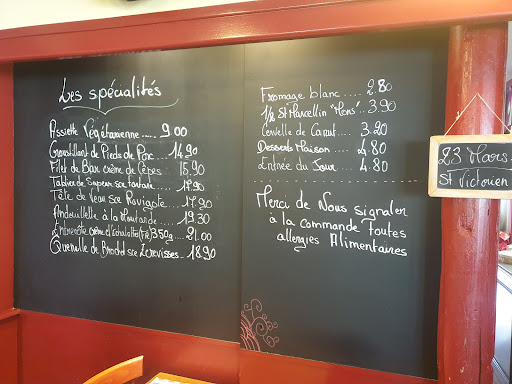 Les spécialités
Assiette Végétarienne..... 9.00
Croustillant de Pieds de Porc... 14.90
Filet de Bar crème de Cèpes 15.90
Tablier de Sapeur sce tartare.... 17.90
Tête de Veau sce Ravigote.... 17.90
Andouillette à la Moutarde.... 19.30
Entrecôte crème d'Echalotte(Fr) 350g.... 21.00
Quenelle de Brochet sce Ecrevisses.. 18.90
Fromage blanc.... 2.80
1/2 St Marcellin "Mons".. 3.90
Cervelle de Canut.... 3.20
Desserts Maison.... 4.80
Entrée du Jour.... 4.80
Merci de Nous signaler
à la commande toutes
allergies Alimentaires
23 Mars
St Victorien